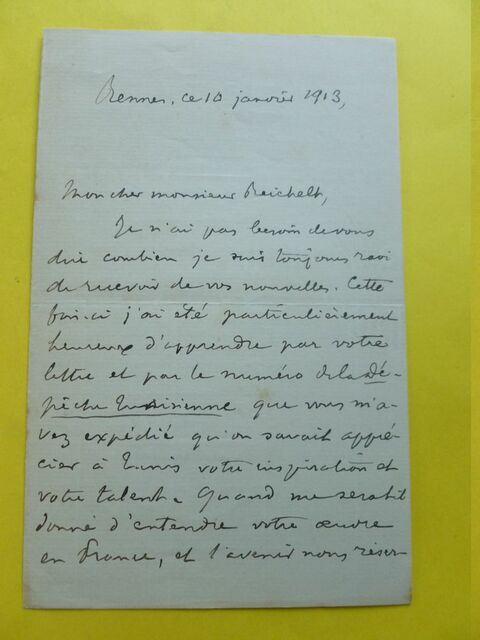 Rennes, ce 10 janvier 1913,
Mon cher monsieur Reichelt,
Je n'ai pas besoin de vous
dire combien je suis toujours ravi
de recevoir de vos nouvelles. Cette
fois-ci j'ai été particulièrement
heureux d'apprendre par votre
lettre et par le numéro de la Dé-
pêche Tunisienne que vous m'a-
vez expédié qu'on savait appré-
cier à Tunis votre inspiration et
votre talent. Quand me serait-il
donné d'entendre votre œuvre
en France, et l'avenir nous réser-